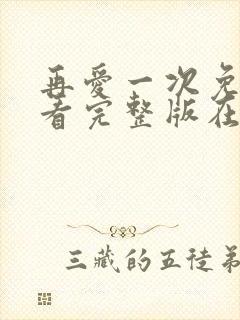 再愛一次免
看完整版在
三藏的五徒弟